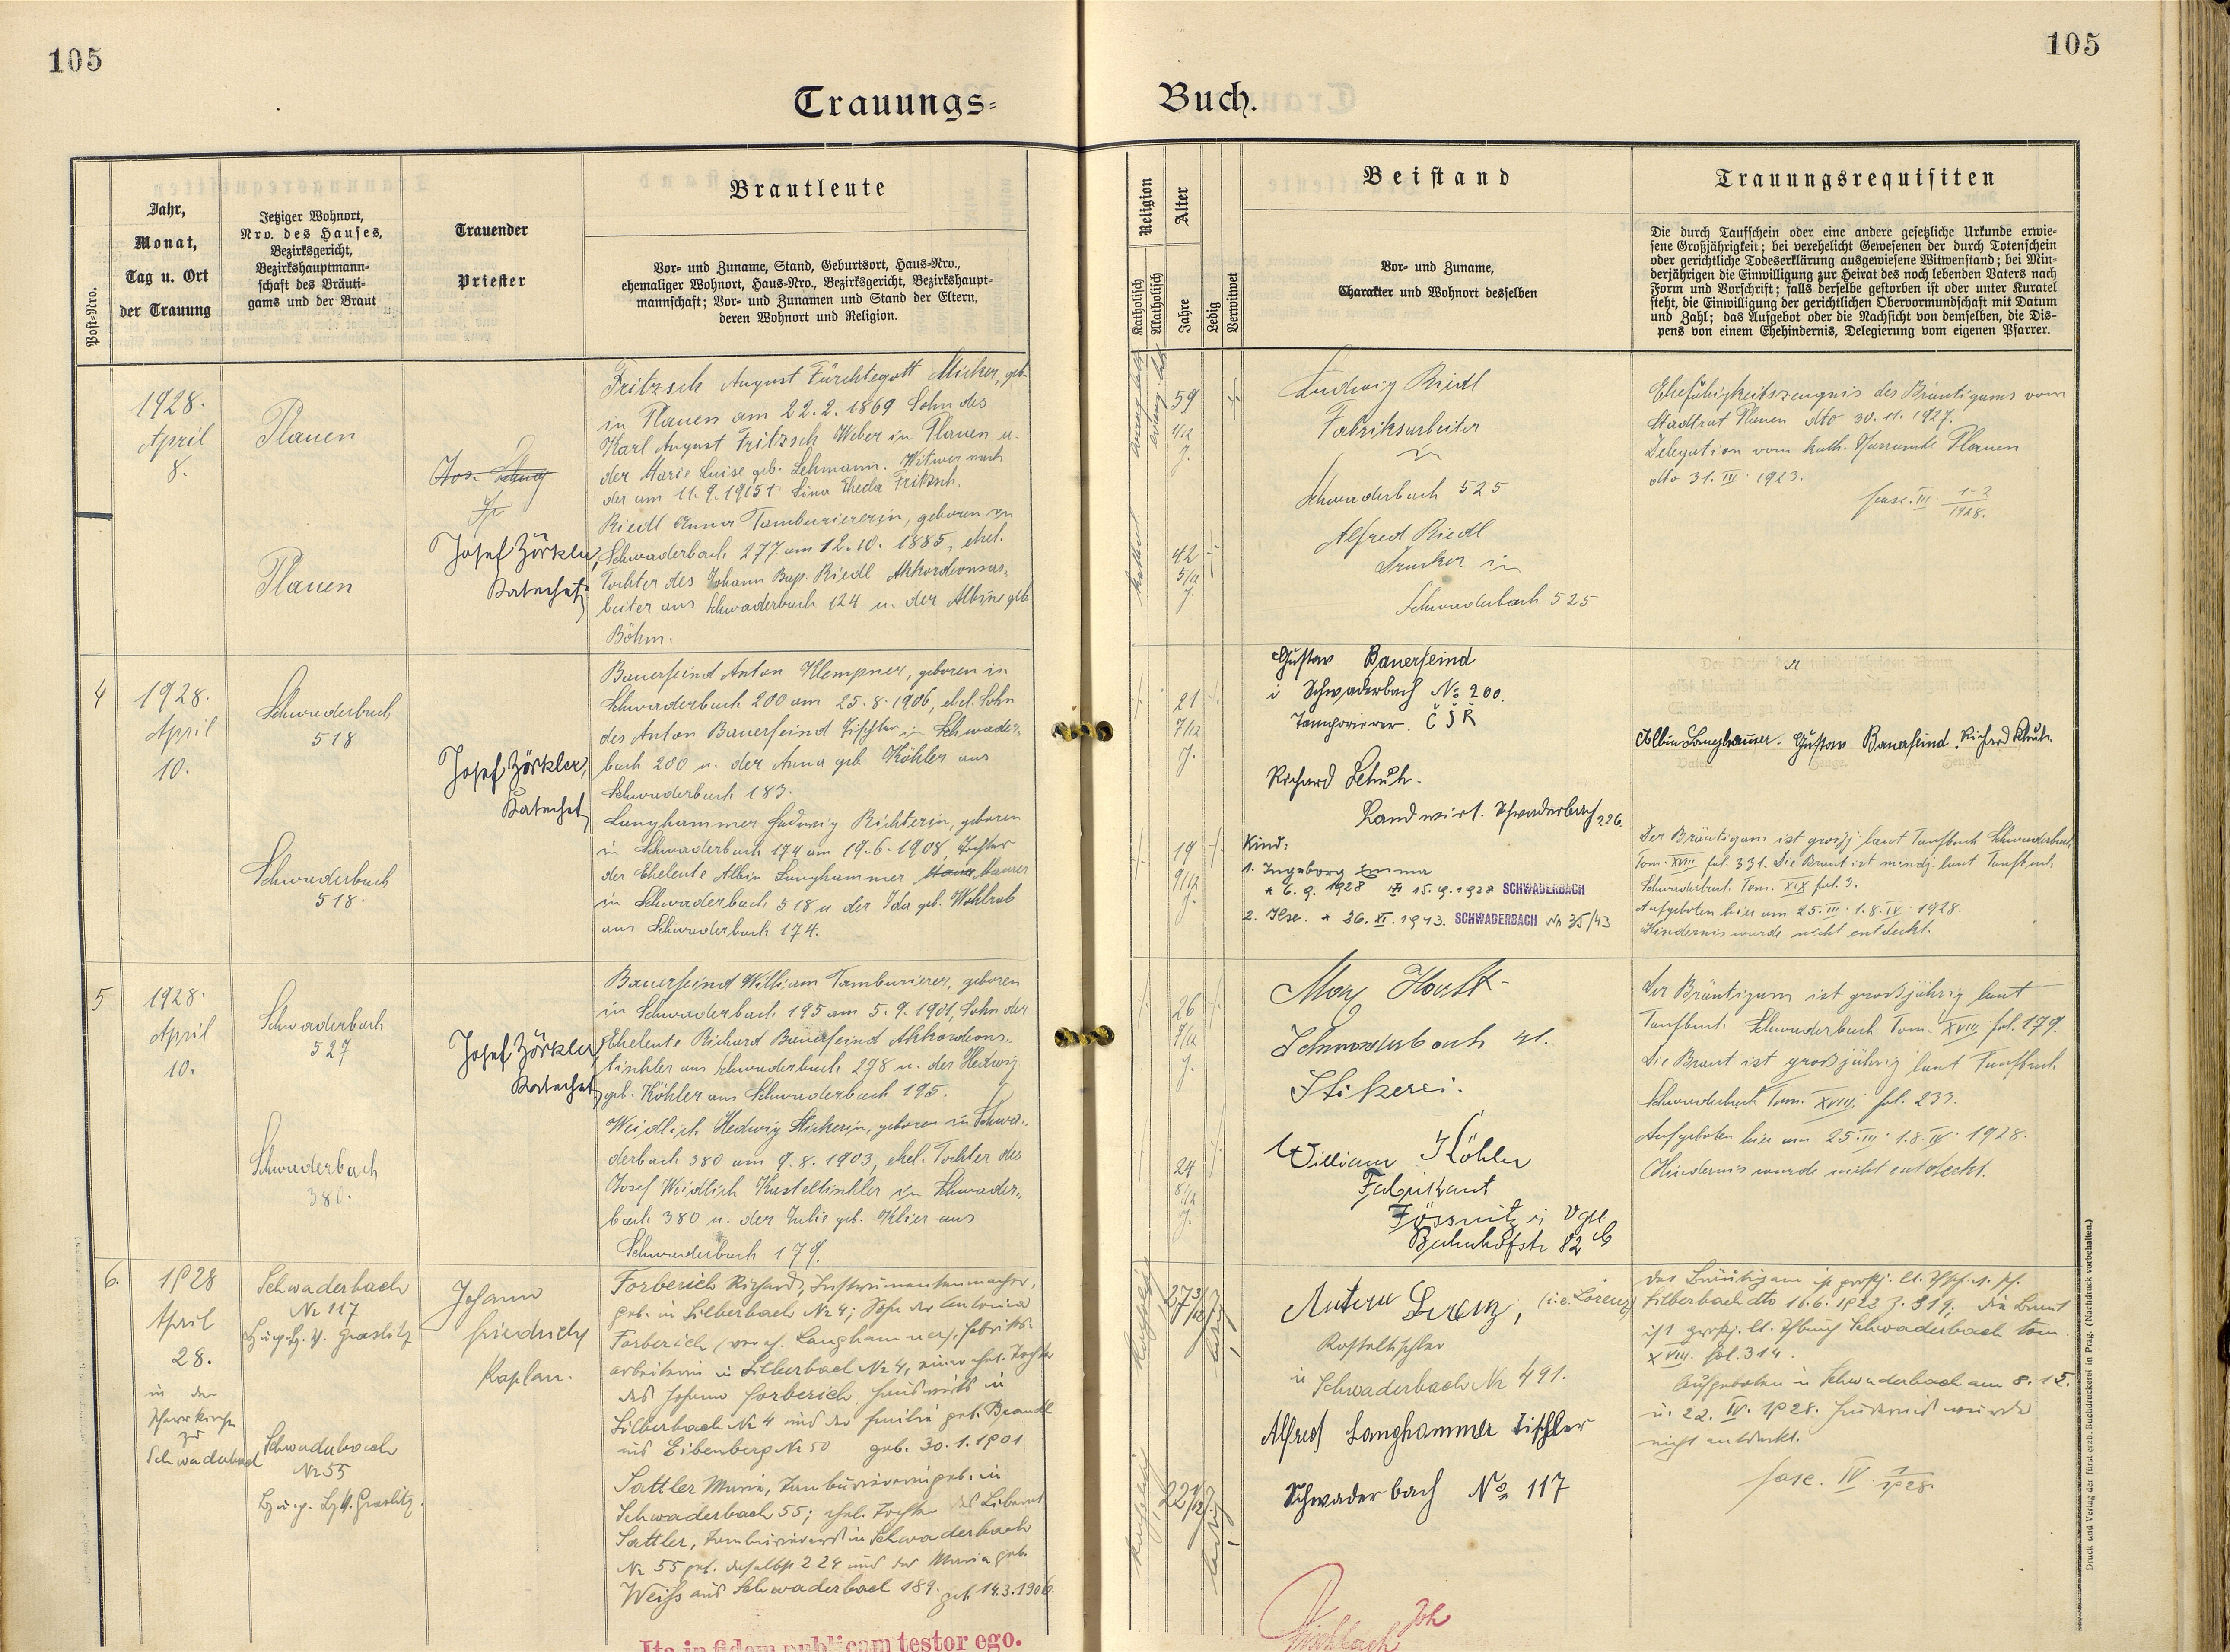 105
105
Trauungs-
Buch.
Post-Nro.
Jahr,
Monat,
Tag u. Ort
der Trauung
Jetziger Wohnort,
Nro. des Hauses,
Bezirksgericht,
Bezirkshauptmann-
schaft des Bräuti-
gams und der Braut
Trauender
Priester
Brautleute
Vor- und Zuname, Stand, Geburtsort, Haus-Nro.,
ehemaliger Wohnort, Haus-Nro., Bezirksgericht, Bezirkshaupt-
mannschaft; Vor- und Zunamen und Stand der Eltern,
deren Wohnort und Religion.
Religion
Katholisch
Akatholisch
Alter
Jahre
Ledig
Verwitwet
Beistand
Vor- und Zuname,
Charakter und Wohnort desselben
Trauungsrequisiten
Die durch Taufschein oder eine andere gesetzliche Urkunde erwie-
sene Großjährigkeit; bei verehelicht Gewesenen der durch Totenschein
oder gerichtliche Todeserklärung ausgewiesene Witwenstand; bei Min-
derjährigen die Einwilligung zur Heirat des noch lebenden Vaters nach
Form und Vorschrift; falls derselbe gestorben ist oder unter Kuratel
steht, die Einwilligung der gerichtlichen Obervormundschaft mit Datum
und Zahl; das Aufgebot oder die Nachsicht von demselben, die Dis-
pens von einem Ehehindernis, Delegierung vom eigenen Pfarrer.
1928.
April
8.
Plauen
Plauen
Josef Zörkler,
Katechet
Fritzsch August Fürchtegott Sticker, geb.
in Plauen am 22.2.1869 Sohn des
Karl August Fritzsch Weber in Plauen u.
der Marie Luise geb. Lehmann. Witwer nach
der am 11.9.1915 † Lina Theda Fritzsch.
Riedl Anna Tambouriererin, geboren in
Schwaderbach 277 am 12.10.1885, ehel.
Tochter des Johann Bap. Riedl Akkordionar-
beiter aus Schwaderbach 124 u. der Albine geb.
Böhm.
59
42
5/12
J.
Ludwig Riedl
Fabriksarbeiter
in
Schwaderbach 525
Alfred Riedl
Drucker in
Schwaderbach 525
Ehefähigkeitszeugnis des Bräutigams vom
Stadtrat Plauen dto 30.11.1927.
Delegation vom kath. Pfarramte Plauen
dto 31. III. 1923.
fasc. III. 1-2/1928.
4
1928.
April
10.
Schwaderbach
518
Schwaderbach
518.
Josef Zörkler,
Katechet
Bauerfeind Anton Klempner, geboren in
Schwaderbach 200 am 25.8.1906, ehel. Sohn
des Anton Bauerfeind Tischler in Schwader-
bach 200 u. der Anna geb. Köhler aus
Schwaderbach 183.
Langhammer Hedwig Stickerin, geboren
in Schwaderbach 174 am 19.6.1908, Tochter
der Eheleute Albin Langhammer Maurer
in Schwaderbach 518 u. der Ida geb. Wohlrab
aus Schwaderbach 174.
21
7/12
J.
19
9/12
J.
Gustav Bauerfeind
i Schwaderbach No 200.
Tamporierer. Č S R
Richard Schuh.
Landwirt. Schwaderbach 226.
Kind:
1. Ingeborg Emma
* 6.9.1928 15.9.1928 SCHWADERBACH
2. Ilse. * 26. XI. 1943. SCHWADERBACH Nr 35/43
Albin Langhammer. Gustav Bauerfeind. Richard Schuh.
Der Bräutigam ist großj. laut Taufbuch Schwaderbach
Tom. XVIII fol. 331. Die Braut ist mindj. laut Taufbuch
Schwaderbach Tom. XIX fol. 3.
Aufgeboten hier am 25. III. 1. 8. IV. 1928.
Hindernis wurde nicht entdeckt.
5
1928.
April
10.
Schwaderbach
527
Schwaderbach
380.
Josef Zörkler,
Katechet
Bauerfeind William Tamburierer, geboren
in Schwaderbach 195 am 5.9.1901, Sohn der
Eheleute Richard Bauerfeind Akkordions-
tischler aus Schwaderbach 278 u. der Hedwig
geb. Köhler aus Schwaderbach 195.
Weidlich Hedwig Stickerin, geboren in Schwa-
derbach 380 am 9.8.1903, ehel. Tochter des
Josef Weidlich Kasteltischler in Schwader-
bach 380 u. der Julie geb. Klier aus
Schwaderbach 179.
26
7/12
J.
24
8/12
J.
Max Horst
Schwaderbach 41.
Stikerei.
William Köhler
Fabrikant
Jössnitz i Vgtl
Bahnhofstr 82 b
Der Bräutigam ist großjährig laut
Taufbuch Schwaderbach Tom. XVIII fol. 179.
Die Braut ist großjährig laut Taufbuch
Schwaderbach Tom. XVIII fol. 233.
Aufgeboten hier am 25. III. 1. 8. IV. 1928.
Hindernis wurde nicht entdeckt.
6.
1928
April
28.
in der
Pfarrkirche
zu
Schwaderbach
Schwaderbach
Nr 117
Bz. u. p. Bz. H. Graslitz
Schwaderbach
Nr 55
Bz. u. p. Bz. H. Graslitz.
Johann
Friedrich
Kaplan.
Forberich Richard, Instrumentenmacher,
geb. in Silberbach Nr 4; Sohn der Antonia
Forberich (verehel. Langhammer), Fabriks-
arbeiterin in Silberbach Nr 4, einer ehel. Tochter
des Johann Forberich Hauswirts in
Silberbach Nr 4 und der Emilie geb. Brandl
aus Eibenberg Nr 50 geb. 30.1.1901
Sattler Maria, Tamburiererin geb. in
Schwaderbach 55; ehel. Tochter des Liberat
Sattler, Tambourierers in Schwaderbach
Nr 55 geb. daselbst 224 und der Maria geb.
Weiß aus Schwaderbach 189. geb. 14.3.1906.
katholisch
27 3/12
ledig
katholisch
22 1/12
ledig
Anton Lorenz, (i.e. Lorenz)
Kasteltischler
in Schwaderbach Nr 491.
Alfred Langhammer Tischler
Schwaderbach No 117
Der Bräutigam ist großj. lt. Tfsch. v. Pf.
Silberbach dto 16.6.1922 Z. 319; die Braut
ist großj. lt. Tfbuch Schwaderbach tom.
XVIII. fol. 314.
Aufgeboten in Schwaderbach am 8. 15.
u. 22. IV. 1928. Hindernis wurde
nicht entdeckt.
fasc. IV. 1/1928.
Ita in fidem publicam testor ego.
Joh
Druck und Verlag der fürsterzb. Buchdruckerei in Prag. (Nachdruck vorbehalten.)